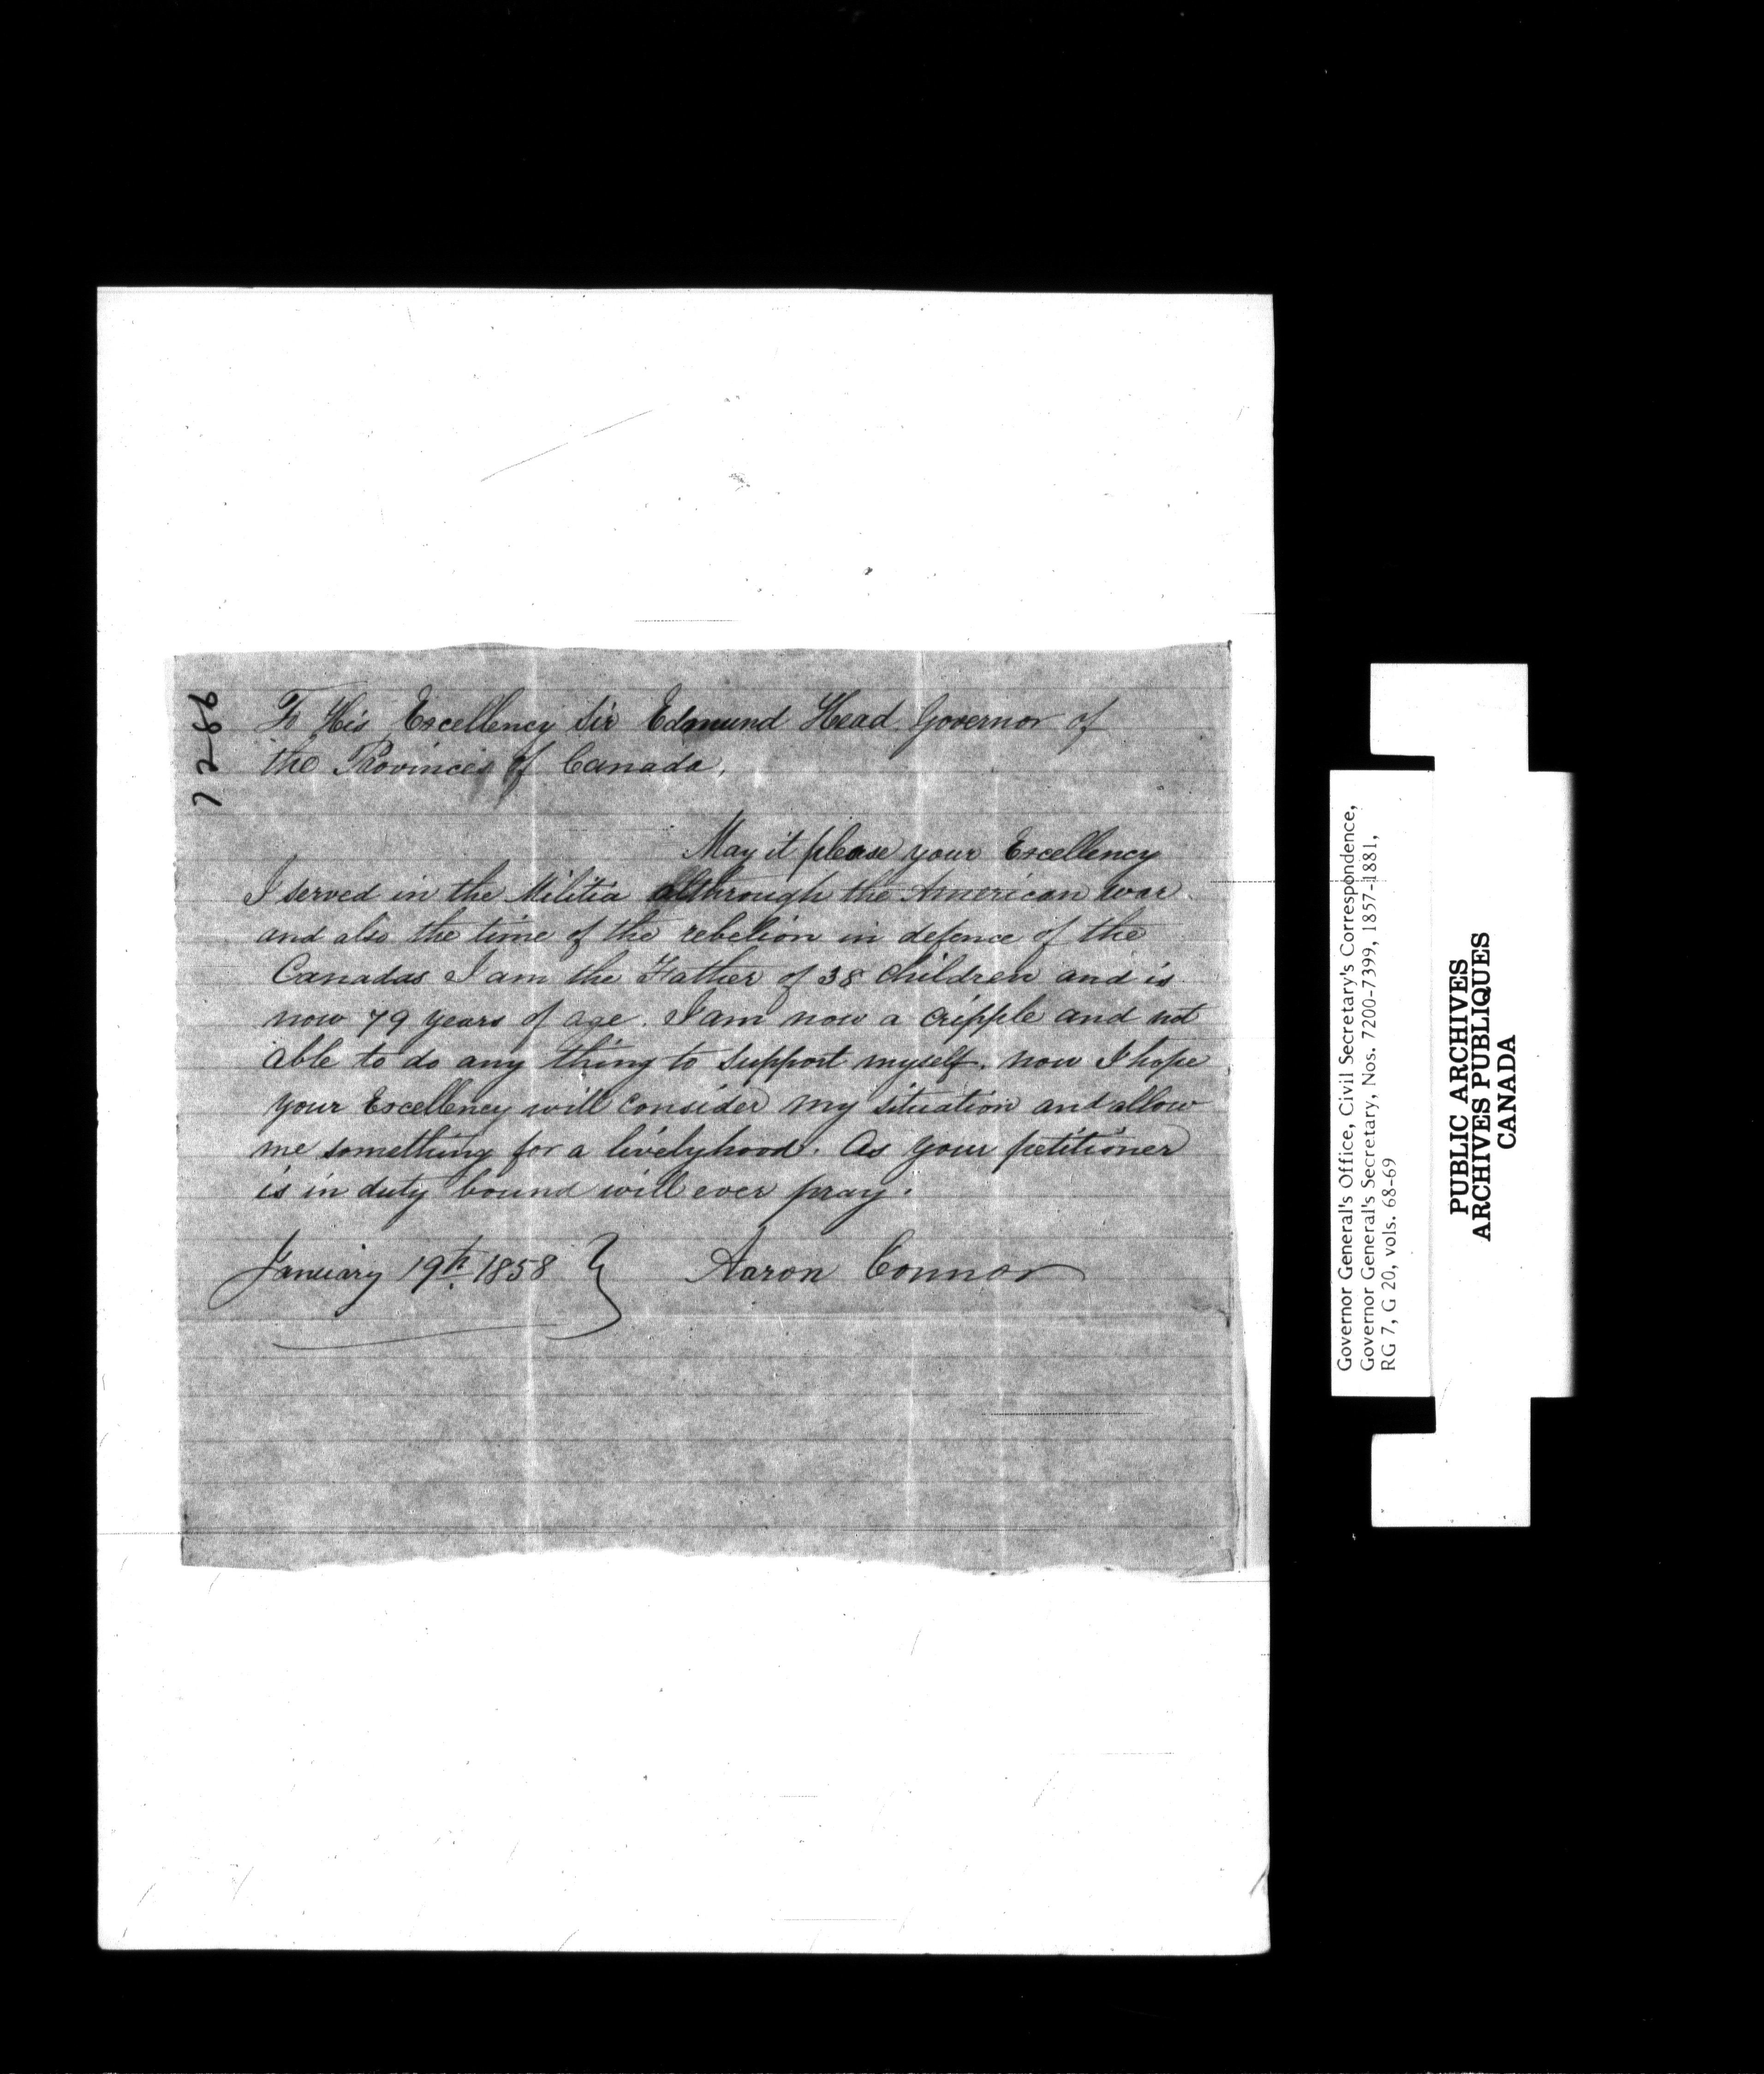 7286
To His Excellency Sir Edmund Head Governor of
the Provinces of Canada,
May it please your Excellency
I served in the Militia allthrough the American war
and also the time of the rebelion in defence of the
Canadas I am the Father of 38 children and is
now 79 years of age. I am now a cripple and not
able to do any thing to support myself. now I hope
your Excellency will consider my situation and allow
me something for a livelyhood. As your petitioner
is in duty bound will ever pray.
January 19th 1858 Aaron Connor
Governor General's Office, Civil Secretary's Correspondence,
Governor General's Secretary, Nos. 7200-7399, 1857-1881,
RG 7, G 20, vols. 68-69
PUBLIC ARCHIVES
ARCHIVES PUBLIQUES
CANADA